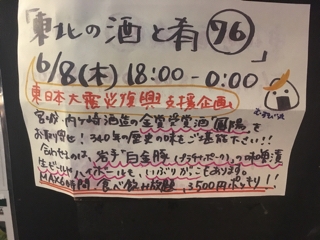 「東北の酒と肴 76」
6/8(木) 18:00-0:00
東日本大震災復興支援企画
むすびや
宮城・内ヶ崎酒造の金賞受賞酒「鳳陽」を
お取寄せ! 340年の歴史の味をご堪能下さい!!
合わせるのは、岩手「白金豚(プラチナポーク)」の味噌漬
生ビール ハイボールも、いぶりがっこもあります。
MAX6時間 食べ飲み放題、3,500円ポッキリ!!